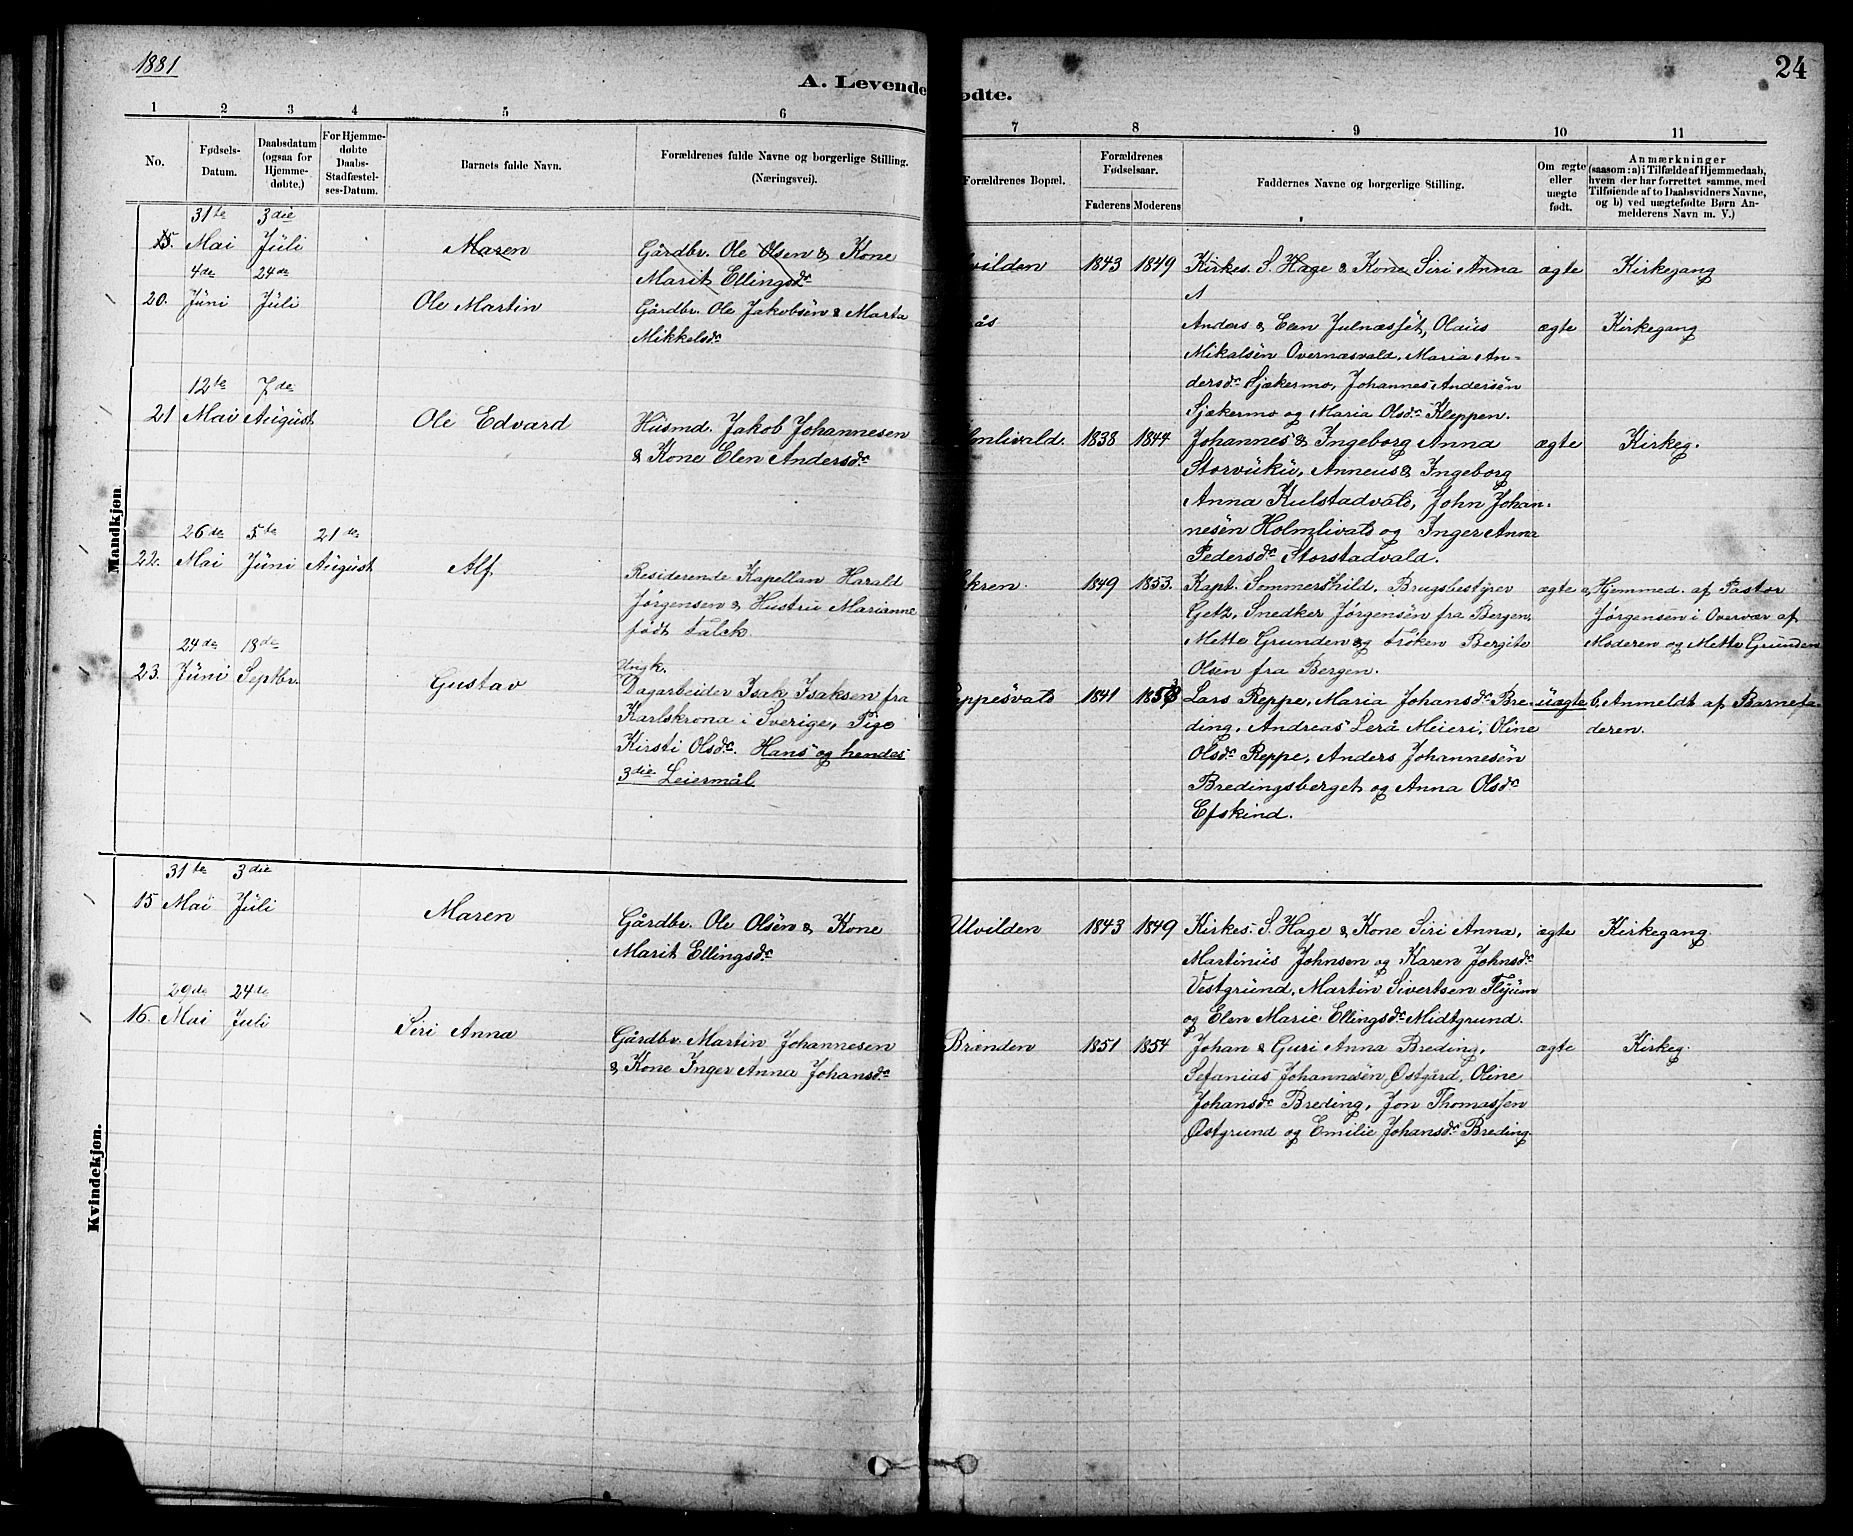 1881
24
A. Levende
ødte.
1 2 3 4 5 6 7 8 9 10 11
No.
Fødsels-
Datum.
Daabsdatum
(ogsaa for
Hjemme-
døbte.)
For Hjemme-
døbte
Daabs-
Stadfæstel-
ses-Datum.
Barnets fulde Navn.
Forældrenes fulde Navne og borgerlige Stilling.
(Næringsvei).
Forældrenes Bopæl.
Forældrenes
Fødselsaar.
Faderens Moderens
Faddernes Navne og borgerlige Stilling.
Om ægte
eller
uægte
født.
Anmærkninger
(saasom: a) i Tilfælde af Hjemmedaab,
hvem der har forrettet samme, med
Tilføiende af to Daabsvidners Navne,
og b) ved uægtefødte Børn An-
melderens Navn m. V.)
Mandkjøn
31te 3die
15. Mai Juli Maren Gårdbr. Ole Olsen & Kone vilden 1843 1849 Kirkes. S. Hage & Kone Siri Anna ægte Kirkegang
Marit Ellingsdr
4de 24de
20. Juni Juli Ole Martin Gårdbr. Ole Jakobsen & Marta ås Anders & Elen Julnæsset, Olaus ægte Kirkegang
Mikkelsdr Mikalsen Overnæsvald, Maria An-
dersdr Sjækermo, Johannes Andersen
Sjækermo og Maria Olsdr Kleppen.
12te 7de
21 Mai August Ole Edvard Husmd. Jakob Johannesen mlivald. 1838 1844 Johannes & Ingeborg Anna ægte Kirkeg.
& Kone Elen Andersdr Storvuku, Anneus & Ingeborg
Anna Kulstadvald, John Johan-
nesen Holmlivald og Inger Anna
Pedersdr Storstadvald.
26de 5te 21de
22. Mai Juni August Alf Residerende Kapellan Harald kren. 1849 1853. Kapt. Sommershild, Brugsbestyrer ægte a, Hjemmed. af Pastor
Jørgensen & Hustru Marianne Getz, Snedker Jørgensen fra Bergen, Jørgensen i Overvær af
født Falck. Mette Grunden og Frøken Bergite Moderen og Mette Grunden
Olsen fra Bergen.
24de 18de
23. Juni Septbr. Gustav Ungk.
Dagarbeider Isak Isaksen fra eppesvald 1841 1853 Lars Reppe, Maria Johansdr Bre- uægte b, Anmeldt af Barnefa-
Karlskrona i Sverige, Pige ding, Andreas Lerå Meieri, Oline deren.
Kirsti Olsdr. Hans og hendes Olsdr Reppe, Anders Johannesen
3die Leiermål Bredingsberget og Anna Olsdr
Efskind.
Kvindekjøn.
31te 3die
15 Mai Juli Maren Gårdbr. Ole Olsen & Kone Ulvilden 1843 1849 Kirkes. S. Hage & Kone Siri Anna, ægte Kirkegang
Marit Ellingsdr Martinus Johnsen og Karen Johnsdr
Vestgrund, Martin Sivertsen Flyum
og Elen Marie Ellingsdr Midtgrund.
29de 24de
16. Mai Juli Siri Anna Gårdbr. Martin Johannesen Brenden 1851 1854 Johan & Guri Anna Breding, ægte Kirkeg.
& Kone Inger Anna Johansdr Sefanias Johannesen Østgård, Oline
Johansdr Breding, Jon Thomassen
Østgrund og Emilie Johansdr Breding.